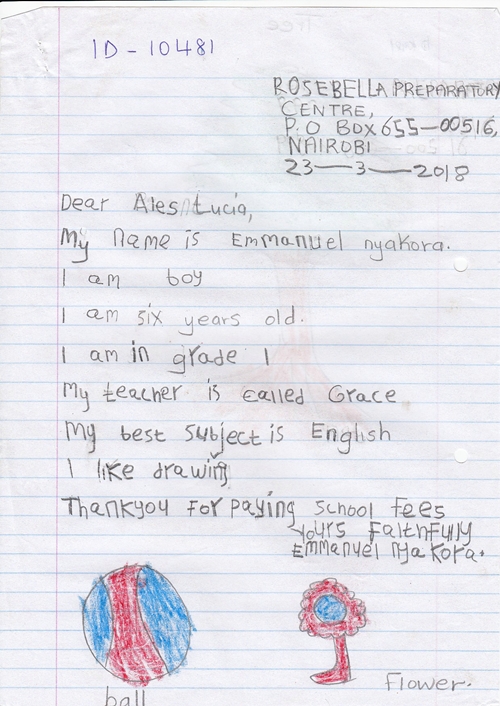 ID - 10481
ROSEBELLA PREPARATORY
CENTRE,
P.O BOX 655-00516,
NAIROBI
23-3-2018
Dear Ales Lucia,
My name is Emmanuel nyakora.
I am boy
I am six years old.
I am in grade 1
My teacher is called Grace
My best subject is English
I like drawing
Thankyou for paying school fees
yours faithfully
Emmanuel nyakora.
ball
flower.